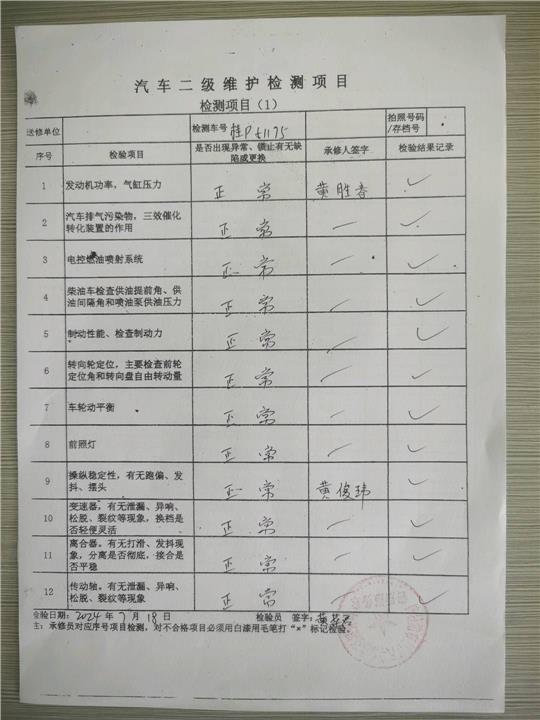 汽车二级维护检测项目
检测项目（1）
送修单位 检测车号 拍照号码/存档号
序号 检验项目 是否出现异常、锁止有无缺陷或更换 承修人签字 检验结果记录
1 发动机功率，气缸压力 正常 黄胜春 ✓
2 汽车排气污染物，三效催化转化装置的作用 正常 — ✓
3 电控燃油喷射系统 正常 — ✓
4 柴油车检查供油提前角、供油间隔角和喷油泵供油压力 正常 — ✓
5 制动性能、检查制动力 正常 — ✓
6 转向轮定位，主要检查前轮定位角和转向盘自由转动量 正常 — ✓
7 车轮动平衡 正常 — ✓
8 前照灯 正常 — ✓
9 操纵稳定性，有无跑偏、发抖、摆头 正常 黄俊玮 ✓
10 变速器，有无泄漏、异响、松脱、裂纹等现象，换档是否轻便灵活 正常 — ✓
11 离合器，有无打滑、发抖现象，分离是否彻底，接合是否平稳 正常 — ✓
12 传动轴，有无泄漏、异响、松脱、裂纹等现象 正常 — ✓
检验日期：2024年7月18日 检验员 签字：
主：承修员对应序号项目检测，对不合格项目必须用白漆用毛笔打“×”标记检验。